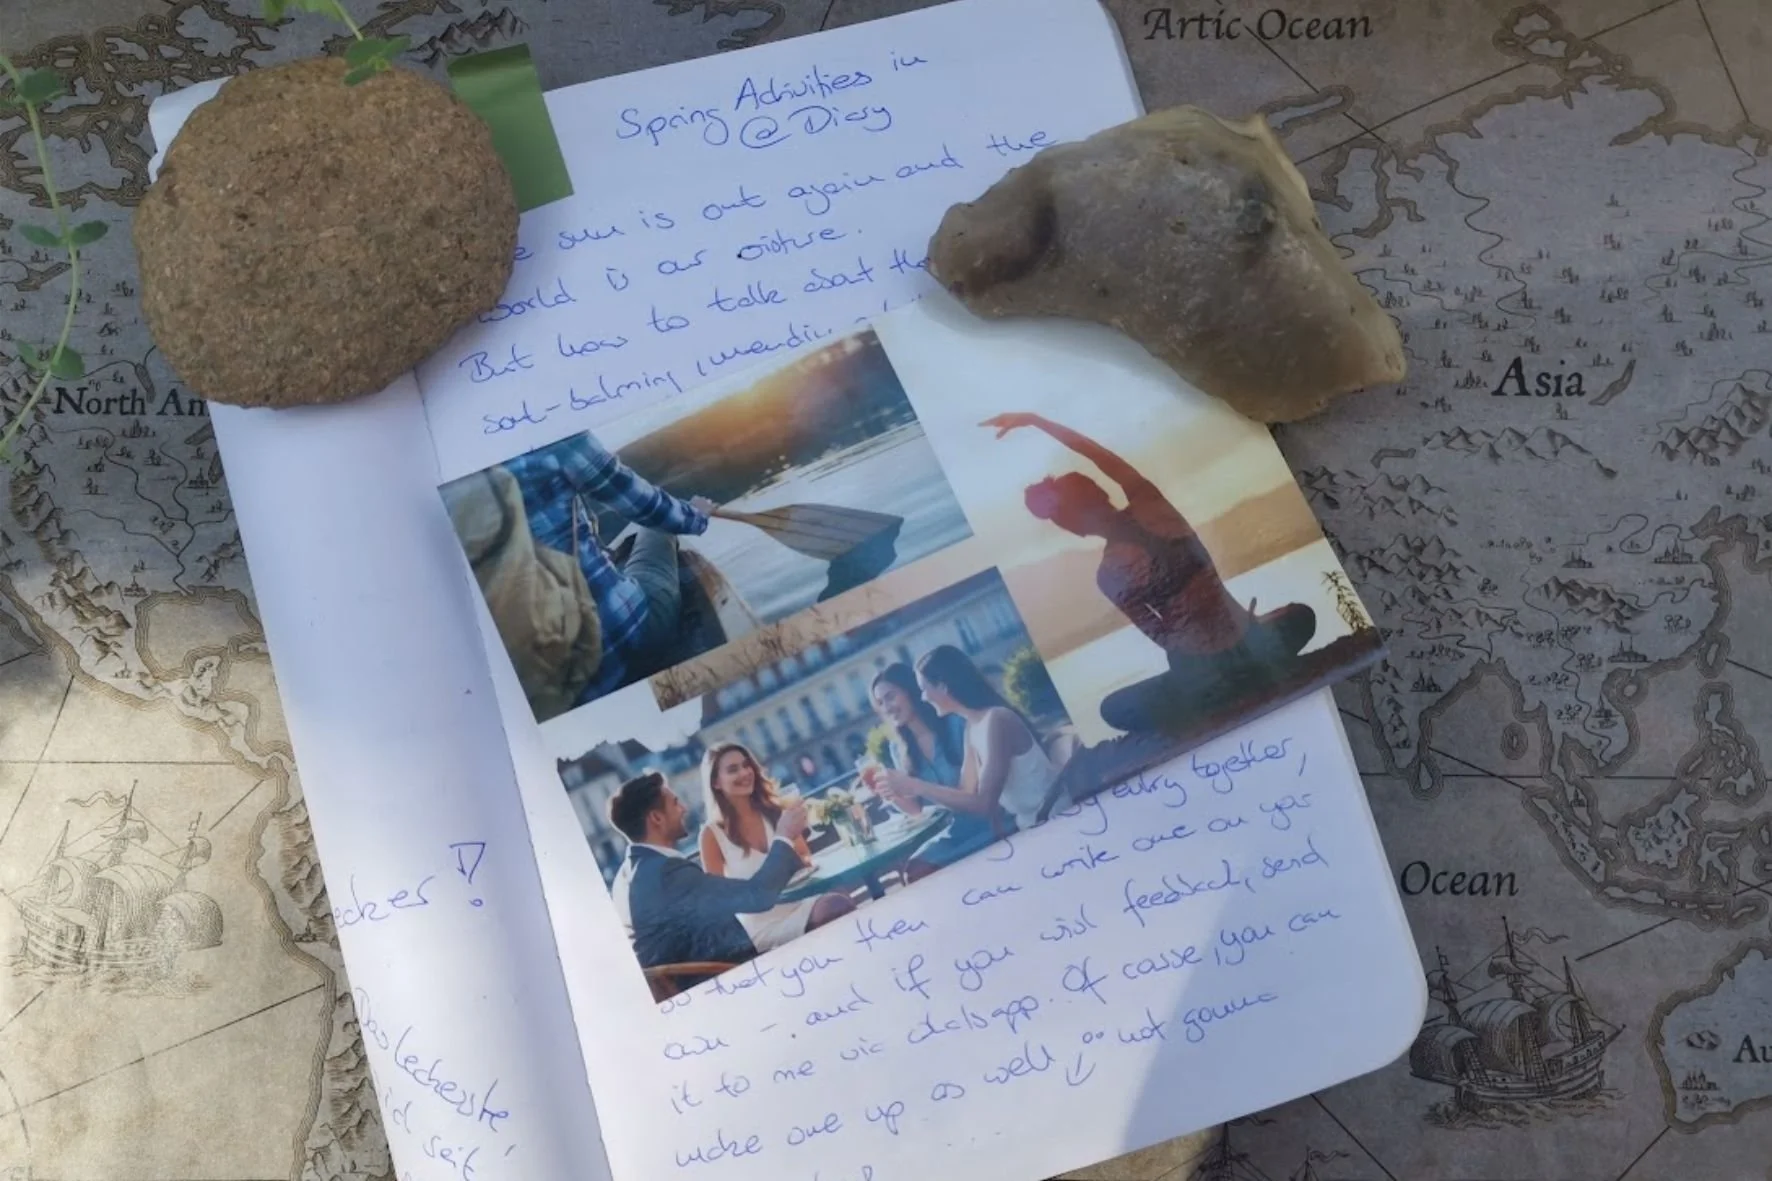 Artic Ocean
North Am
Asia
Ocean
Au
Spring Activities in
@ Diary
e sun is out again and the
world is our oisture.
But how to talk about the
soul-balming, mendin
entry together,
so that you then can write one on your
own - and if you wish feedback, send
it to me via whatsapp. Of casse, you can
make one up as well not gonna
ecker!
leckerste
id seit